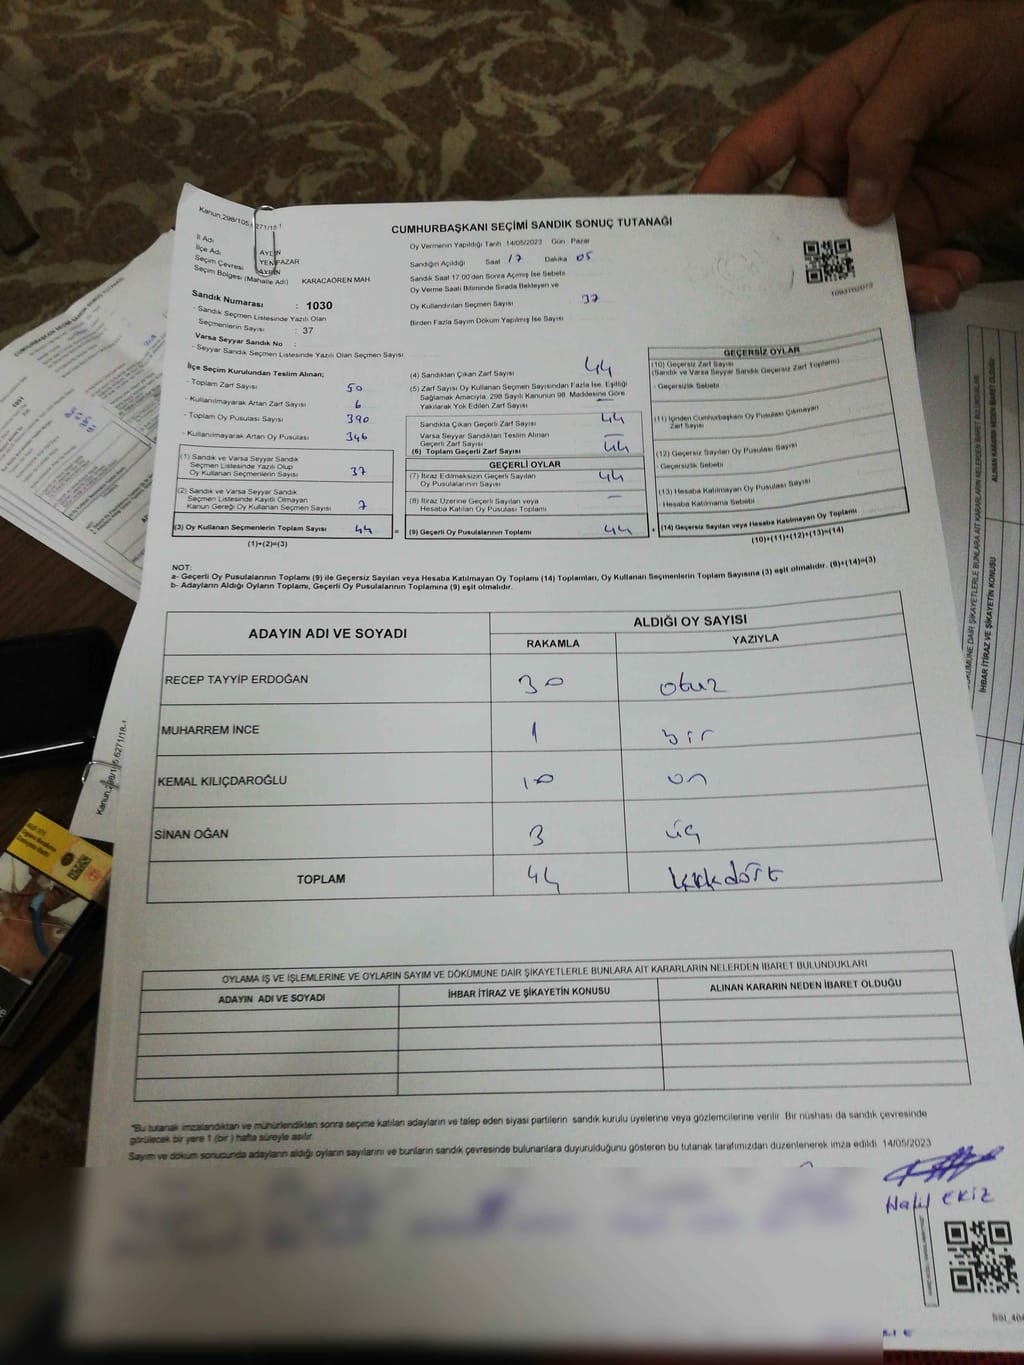 Kanun.298/105,6271/18-1
CUMHURBAŞKANI SEÇİMİ SANDIK SONUÇ TUTANAĞI
İl Adı AYDIN
İlçe Adı YENİPAZAR
Seçim Çevresi AYDIN
Seçim Bölgesi (Mahalle Adı) KARACAÖREN MAH
Oy Vermenin Yapıldığı Tarih 14/05/2023 Gün Pazar
Sandığın Açıldığı Saat 17 Dakika 05
Sandık Saat 17:00'den Sonra Açılmış İse Sebebi
Oy Verme Saati Bitiminde Sırada Bekleyen ve
Oy Kullandırılan Seçmen Sayısı 37
Birden Fazla Sayım Döküm Yapılmış İse Sayısı
Sandık Numarası : 1030
- Sandık Seçmen Listesinde Yazılı Olan
Seçmenlerin Sayısı : 37
Varsa Seyyar Sandık No :
- Seyyar Sandık Seçmen Listesinde Yazılı Olan Seçmen Sayısı
İlçe Seçim Kurulundan Teslim Alınan;
- Toplam Zarf Sayısı 50
- Kullanılmayarak Artan Zarf Sayısı 6
- Toplam Oy Pusulası Sayısı 390
- Kullanılmayarak Artan Oy Pusulası 346
(1) Sandık ve Varsa Seyyar Sandık
Seçmen Listesinde Yazılı Olup
Oy Kullanan Seçmenlerin Sayısı 37
(2) Sandık ve Varsa Seyyar Sandık
Seçmen Listesinde Kayıtlı Olmayan
Kanun Gereği Oy Kullanan Seçmen Sayısı 7
(3) Oy Kullanan Seçmenlerin Toplam Sayısı 44 =
(1)+(2)=(3)
(4) Sandıktan Çıkan Zarf Sayısı 44
(5) Zarf Sayısı Oy Kullanan Seçmen Sayısından Fazla İse, Eşitliği
Sağlamak Amacıyla, 298 Sayılı Kanunun 98. Maddesine Göre
Yakılarak Yok Edilen Zarf Sayısı —
Sandıkta Çıkan Geçerli Zarf Sayısı 44
Varsa Seyyar Sandıktan Teslim Alınan
Geçerli Zarf Sayısı —
(6) Toplam Geçerli Zarf Sayısı 44
GEÇERLİ OYLAR
(7) İtiraz Edilmeksizin Geçerli Sayılan
Oy Pusulasının Sayısı 44
(8) İtiraz Üzerine Geçerli Sayılan veya
Hesaba Katılan Oy Pusulası Toplamı —
(9) Geçerli Oy Pusulalarının Toplamı 44 +
GEÇERSİZ OYLAR
(10) Geçersiz Zarf Sayısı
(Sandık ve Varsa Seyyar Sandık Geçersiz Zarf Toplamı)
- Geçersizlik Sebebi
(11) İçinden Cumhurbaşkanı Oy Pusulası Çıkmayan
Zarf Sayısı
(12) Geçersiz Sayılan Oy Pusulası Sayısı
- Geçersizlik Sebebi
(13) Hesaba Katılmayan Oy Pusulası Sayısı
- Hesaba Katılmama Sebebi
(14) Geçersiz Sayılan veya Hesaba Katılmayan Oy Toplamı
(10)+(11)+(12)+(13)=(14)
NOT:
a- Geçerli Oy Pusulalarının Toplamı (9) ile Geçersiz Sayılan veya Hesaba Katılmayan Oy Toplamı (14) Toplamları, Oy Kullanan Seçmenlerin Toplam Sayısına (3) eşit olmalıdır. (9)+(14)=(3)
b- Adayların Aldığı Oyların Toplamı, Geçerli Oy Pusulalarının Toplamına (9) eşit olmalıdır.
ADAYIN ADI VE SOYADI
ALDIĞI OY SAYISI
RAKAMLA YAZIYLA
RECEP TAYYİP ERDOĞAN 30 otuz
MUHARREM İNCE 1 bir
KEMAL KILIÇDAROĞLU 10 on
SİNAN OĞAN 3 üç
TOPLAM 44 kırkdört
OYLAMA İŞ VE İŞLEMLERİNE VE OYLARIN SAYIM VE DÖKÜMÜNE DAİR ŞİKAYETLERLE BUNLARA AİT KARARLARIN NELERDEN İBARET BULUNDUKLARI
ADAYIN ADI VE SOYADI İHBAR İTİRAZ VE ŞİKAYETİN KONUSU ALINAN KARARIN NEDEN İBARET OLDUĞU
"Bu tutanak imzalandıktan ve mühürlendikten sonra seçime katılan adayların ve talep eden siyasi partilerin sandık kurulu üyelerine veya gözlemcilerine verilir. Bir nüshası da sandık çevresinde
görülecek bir yere 1 (bir) hafta süreyle asılır.
Sayım ve döküm sonucunda adayların aldığı oyların sayılarını ve bunların sandık çevresinde bulunanlara duyurulduğunu gösteren bu tutanak tarafımızdan düzenlenerek imza edildi. 14/05/2023
Halil EKİZ